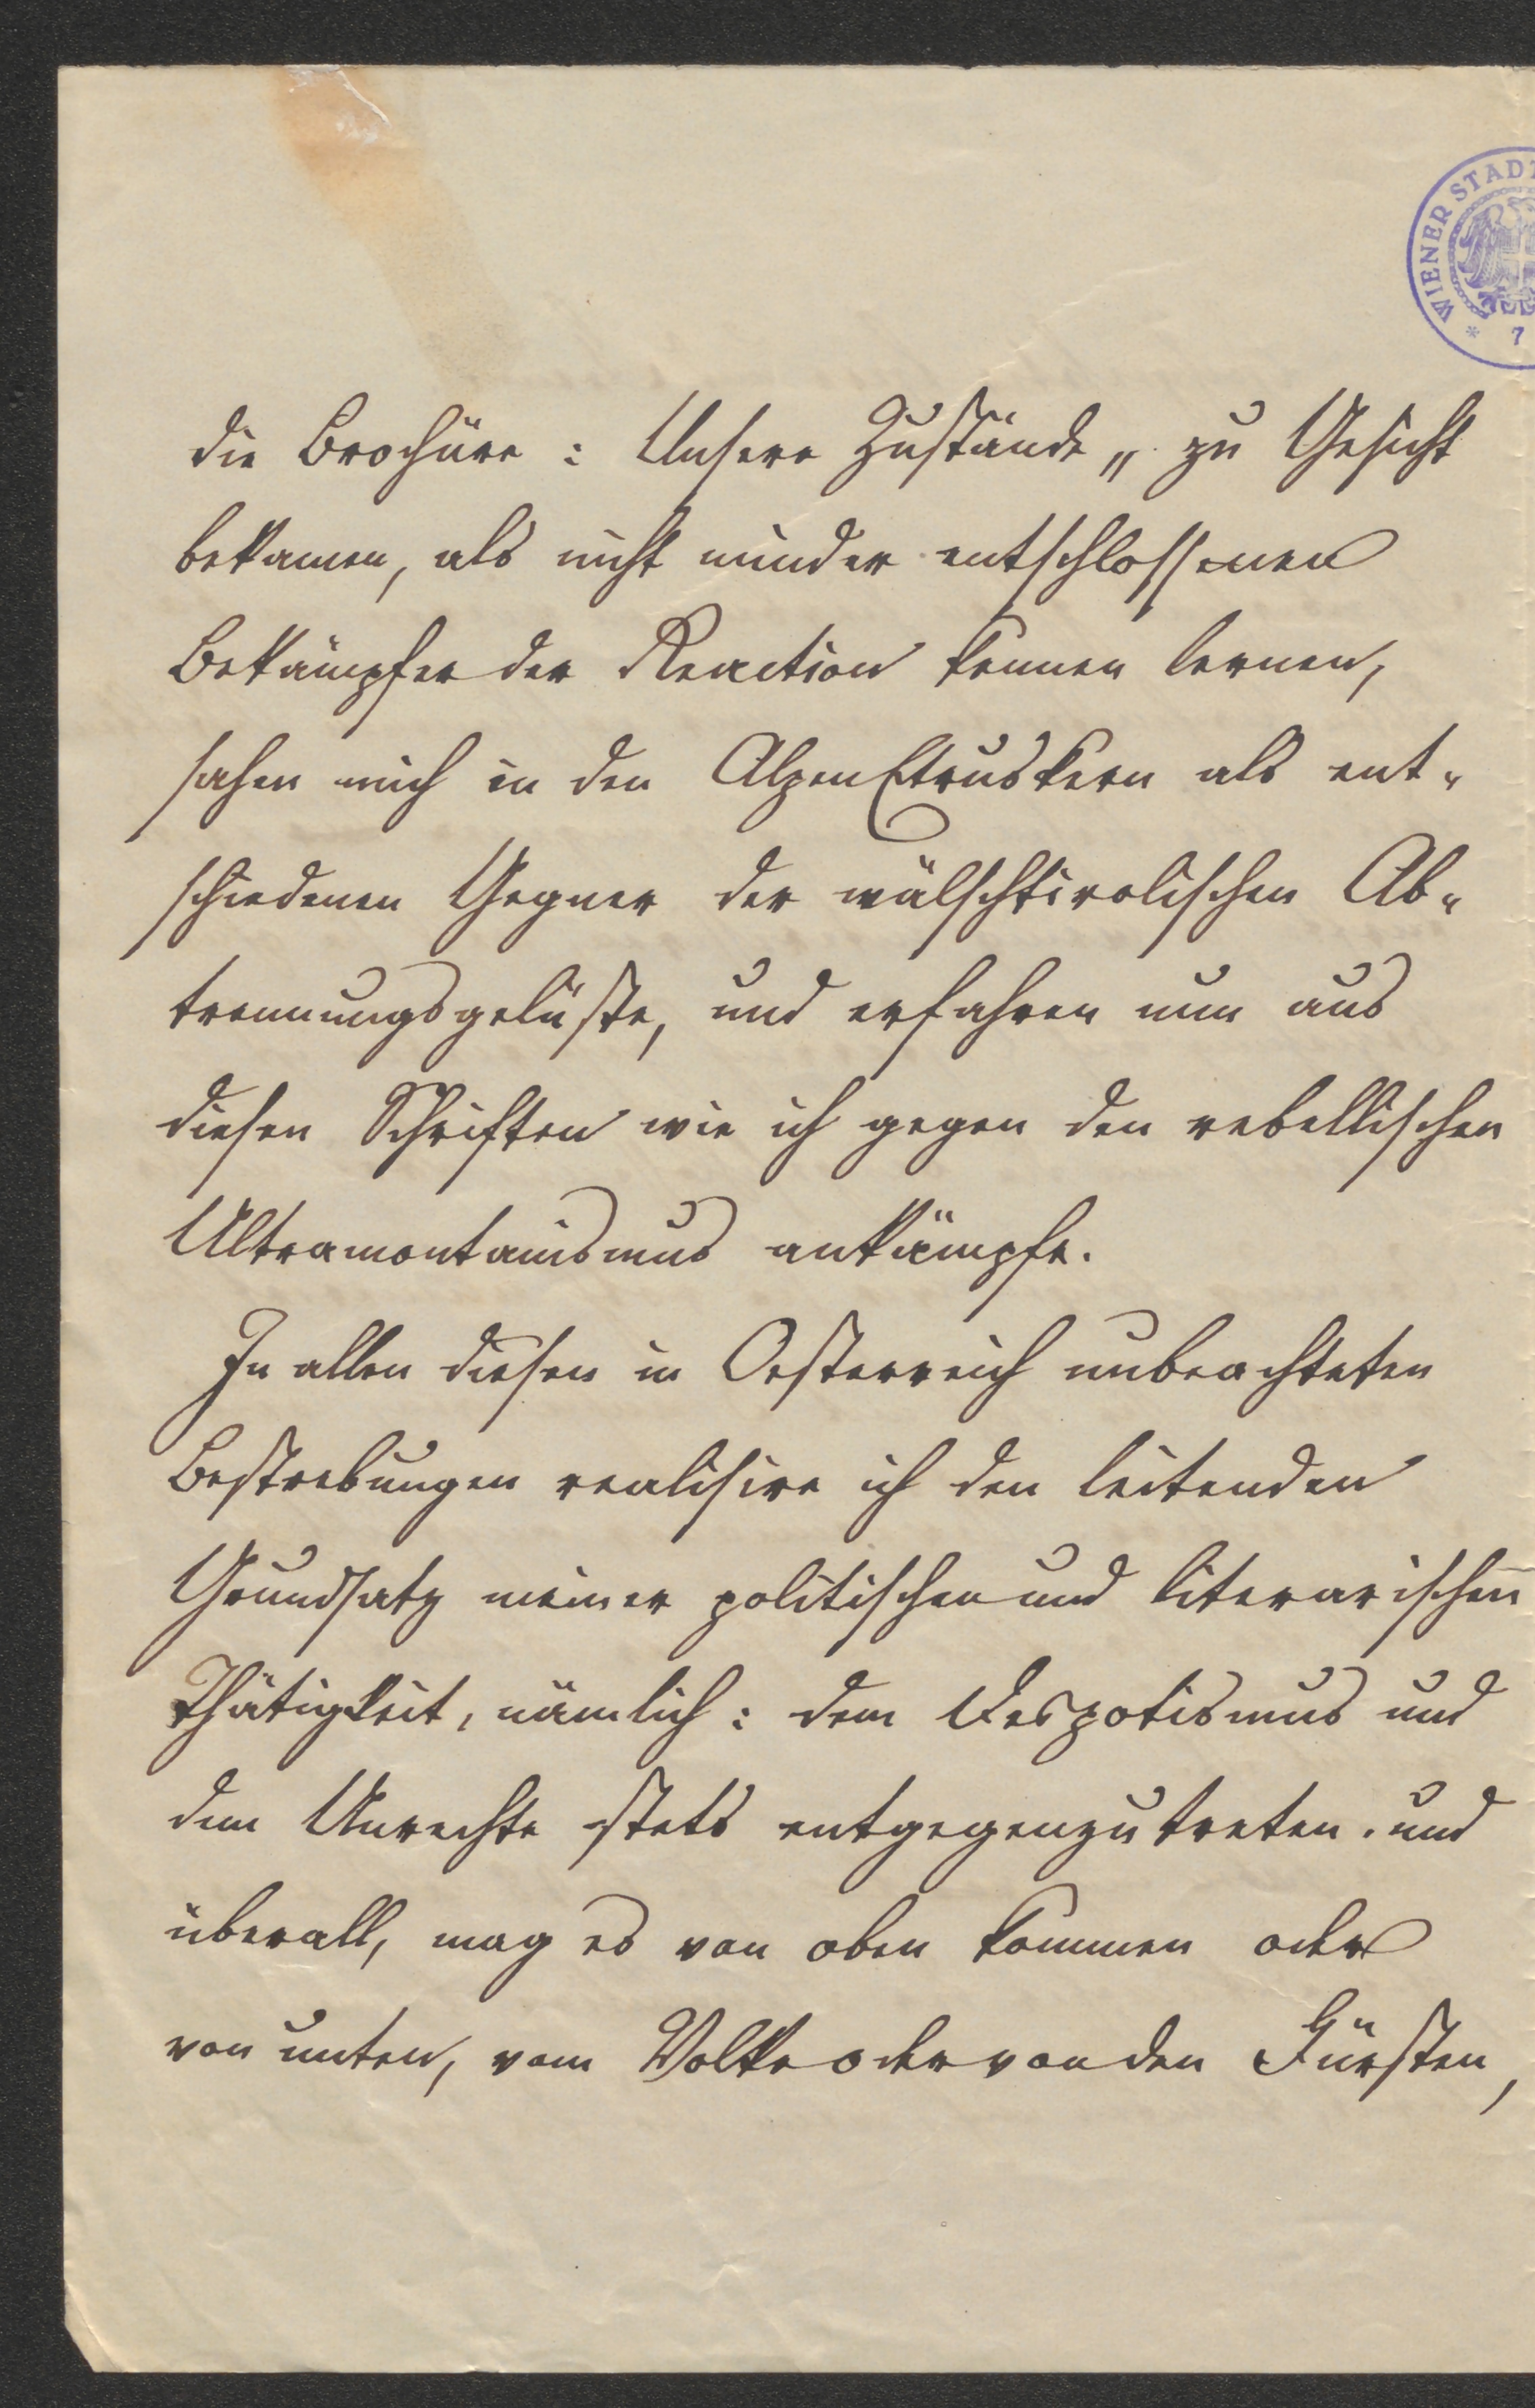 WIENER STADT
* 7
die Brochüre : Unsere Zustände„ zu Gesicht
bekamen, als nicht minder entschlossenen
Bekämpfer der Reaction kennen lernen,
sahen mich in den AlpenEtruskern als ent-
schiedenen Gegner der wälschtirolischen Ab-
trennungsgelüste, und erfahren nun aus
diesen Schriften wie ich gegen den rebellischen
Ultramontanismus ankämpfe.
In allen diesen in Oesterreich unbeachteten
Bestrebungen realisire ich den leitenden
Grundsatz meiner politischen und literarischen
Thätigkeit, nämlich : dem Despotismus und
dem Unrechte stets entgegenzutreten . und
überall, mag es von oben kommen oder
von unten, vom Volke oder von den Fürsten,